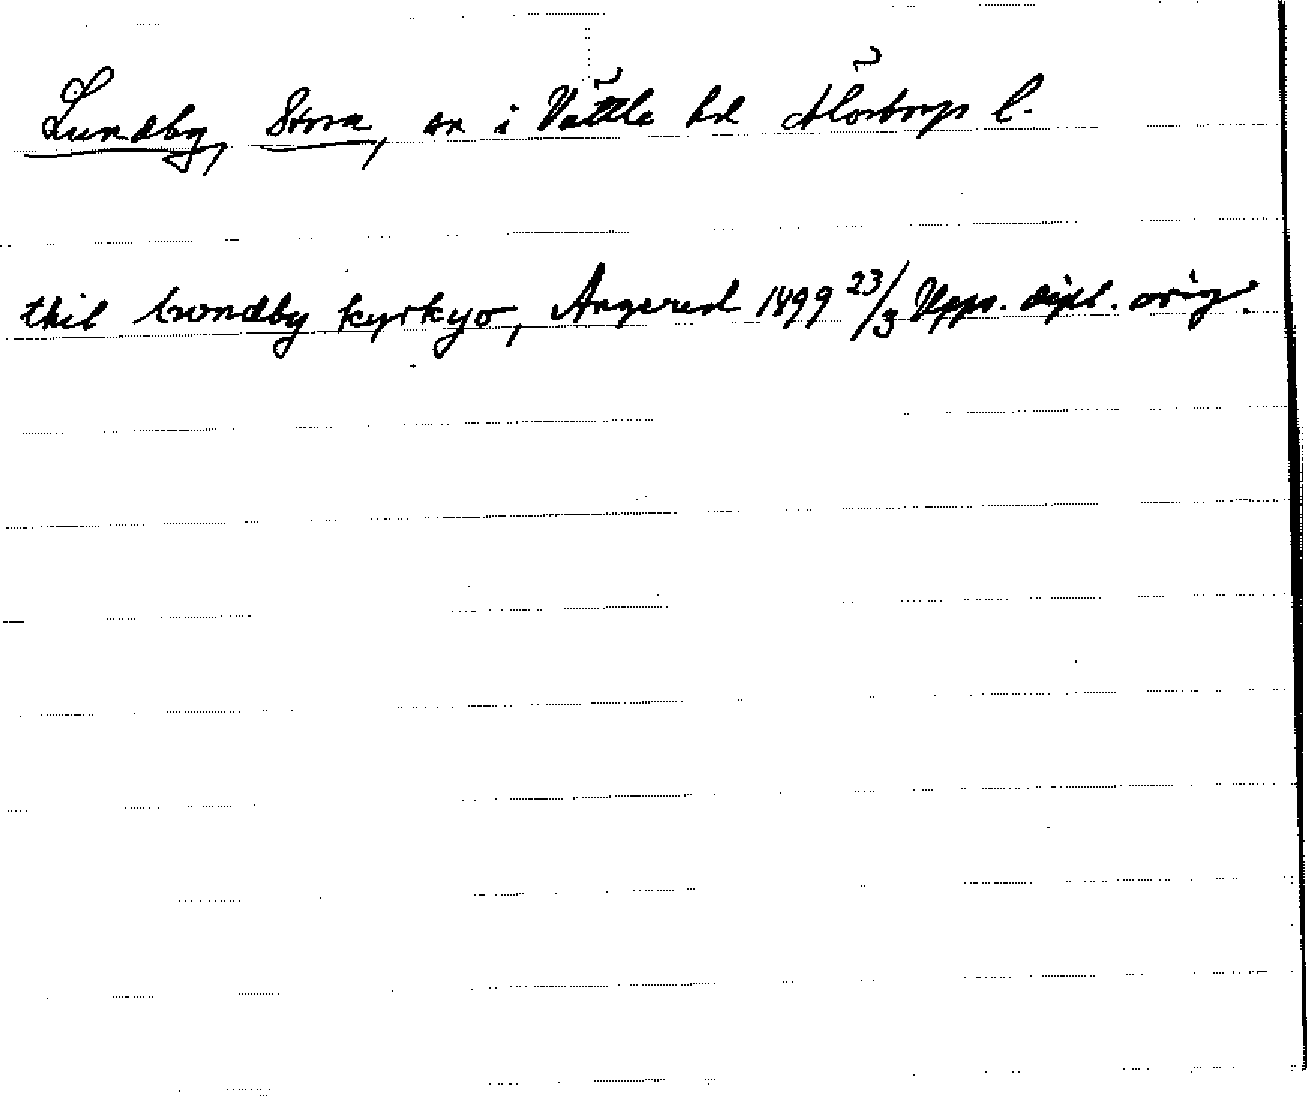 Lundby, Stora, sn i Vättle hd Älvsborgs l.
thil lwndby kyrkyo, Angered 1499 23/3 Upps. dipl. orig.